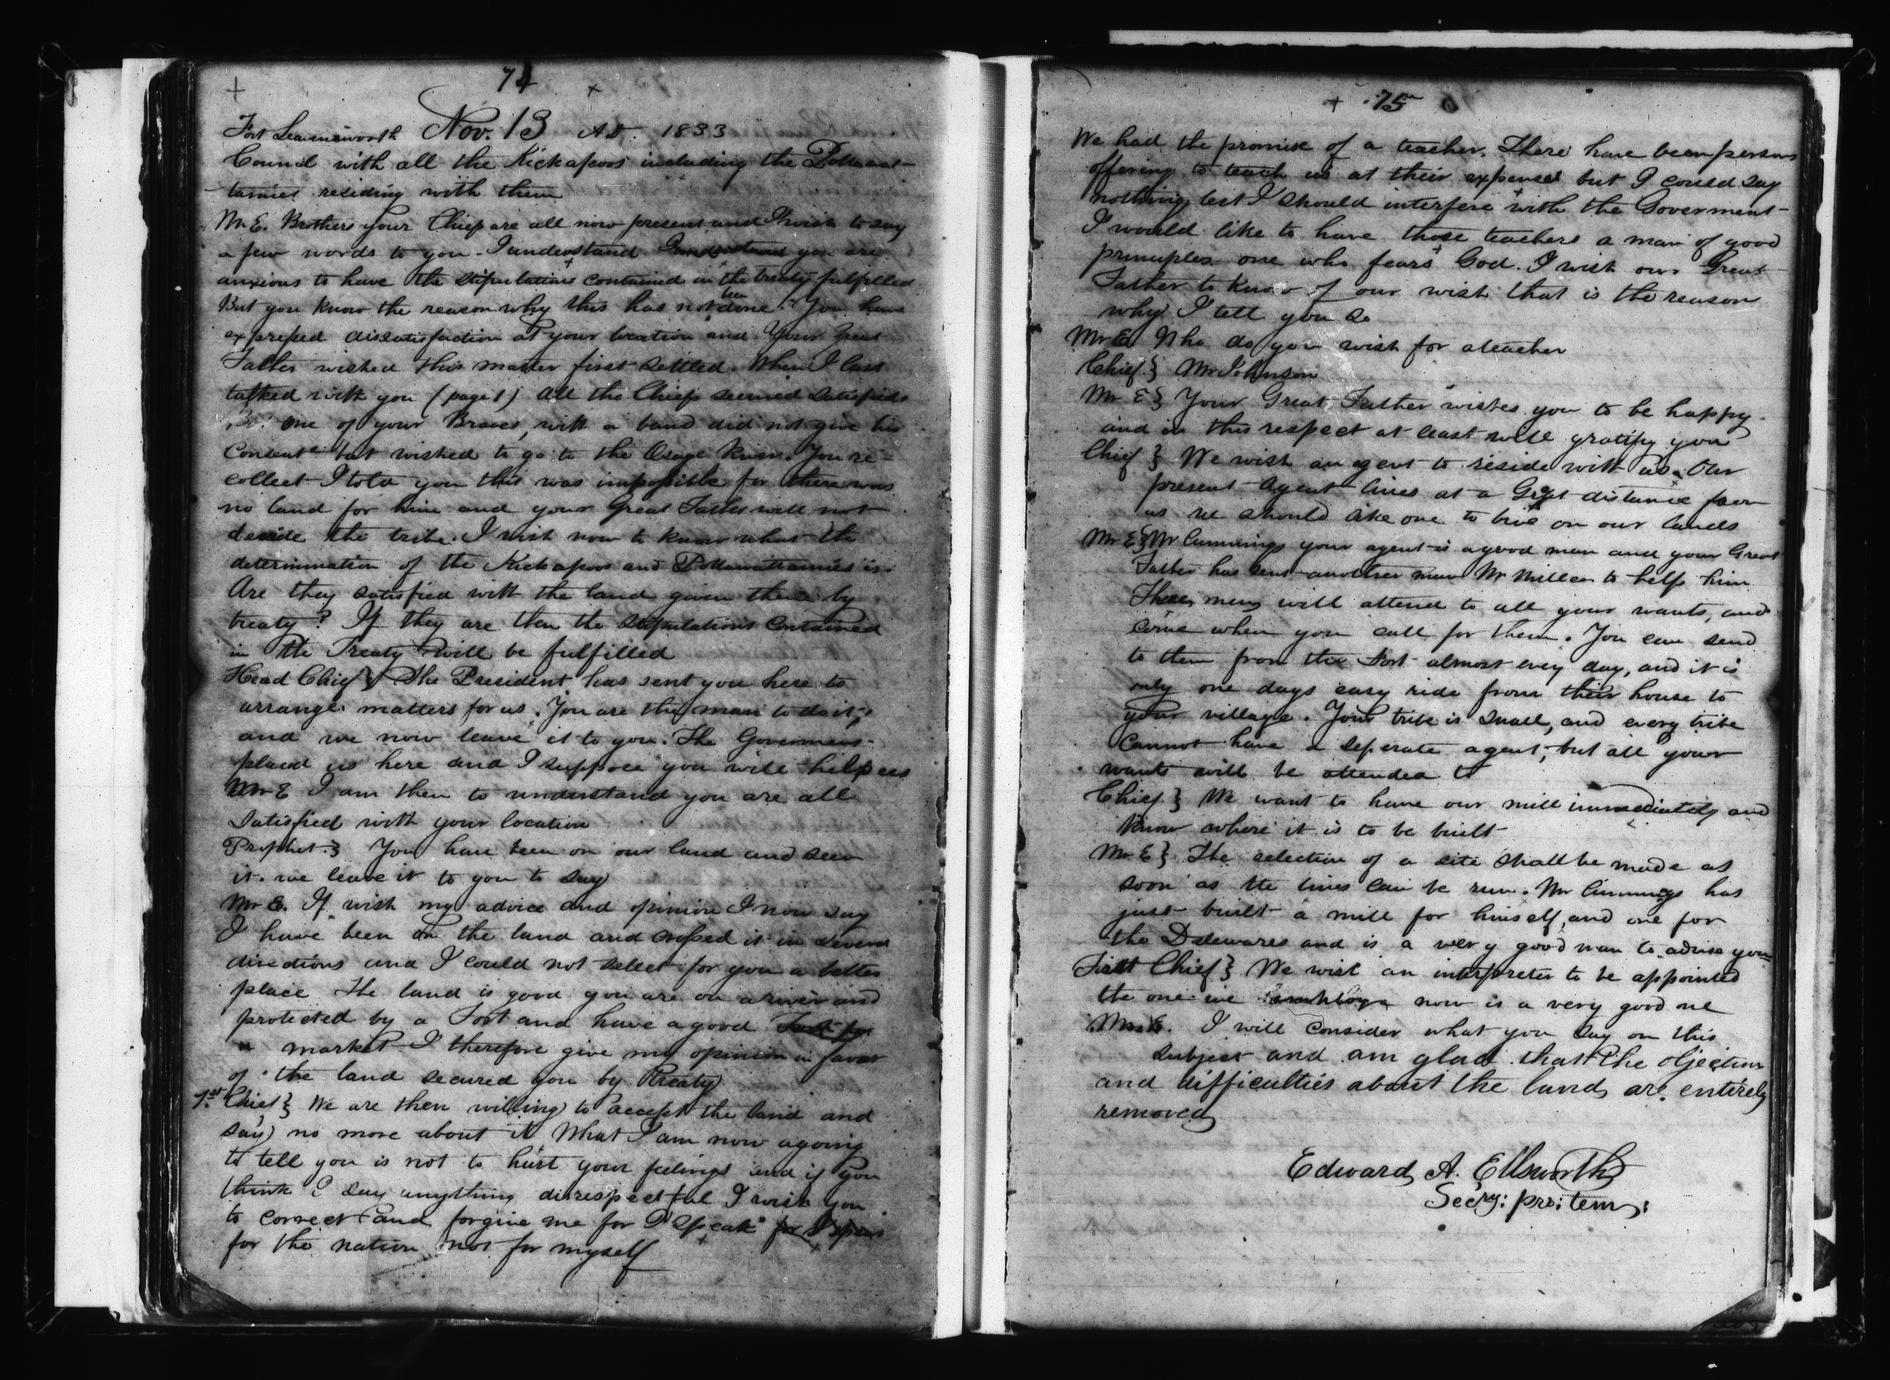 74
Fort Leavensworth Nov. 13 AD. 1833
Council with all the Kickapoos including the Pottawat-
tamies residing with them
Mr E. Brothers your Chiefs are all now present and I wish to say
a few words to you - I understand I understand you are
anxious to have the stipulations contained in the treaty fulfilled
But you know the reason why this has not been done. You have
expressed dissatisfaction at your location and Your Great
Father wished this matter first settled. When I last
talked with you (page 1) all the Chiefs seemed satisfied
But one of your Braves, with a band did not give his
Consent but wished to go to the Osage River. You re-
collect I told you this was impossible for there was
no land for him and your Great Father will not
devide the tribe. I wish now to know what the
determination of the Kickapoos and Pottawattamies is.
Are they satisfied with the land given them by
treaty? If they are then the stipulations contained
in the Treaty will be fulfilled
Head Chief} The President has sent you here to
arrange matters for us. You are the man to do it,
and we now leave it to you. The Goverment
placed us here and I suppose you will help us
Mr E I am then to understand you are all
Satisfied with your location
Prophet.} You have been on our land and seen
it. we leave it to you to say
Mr E. If wish my advice and opinion I now say
I have been on the land and crossed it in several
directions and I could not select for you a better
place. The land is good you are on a river and
protected by a Fort and have a good
market I therefore give my opinion in favor
of the land secured you by Treaty
1st Chief} We are then willing to accept the land and
say no more about it What I am now agoing
to tell you is not to hurt your feelings and if you
think I say anything disrespectful I wish you
to correct and forgive me for I speak for I speak
for the nation not for myself
75
We had the promise of a teacher. There have been persons
offering to teach us at their expense but I could say
nothing lest I should interfere with the Goverment
I would like to have those teachers a man of good
principles one who fears God. I wish our Great
Father to know of our wish that is the reason
why I tell you so
Mr E} Who do you wish for a teacher
Chief.} Mr Johnson
Mr E} Your Great Father wishes you to be happy.
and in this respect at least will gratify you
Chief} We wish an agent to reside with us. Our
present Agent lives at a Great distance from
us we should like one to live on our lands
Mr E} Mr Cummings your agent is a good man and your Great
Father has sent another man Mr Miller to help him
These men will attend to all your wants, and
come when you call for them. You can send
to them from the Fort almost evey day, and it is
only one days easy ride from their house to
your village. Your tribe is small, and every tribe
cannot have a seperate agent, but all your
wants will be attended to
Chief.} We want to have our mill immediately and
know where it is to be built
Mr E} The selection of a site shall be made as
soon as the lines can be run. Mr Cummings has
just built a mill for himself, and one for
the Delewares and is a very good man to advise you
First Chief} We wish an interpreter to be appointed
the one we employ now is a very good one
Mr E. I will consider what you say on this
subject and am glad that the objection
and difficulties about the land, are entirely
removed
Edward A. Ellsworth
Secry: pro: tem: